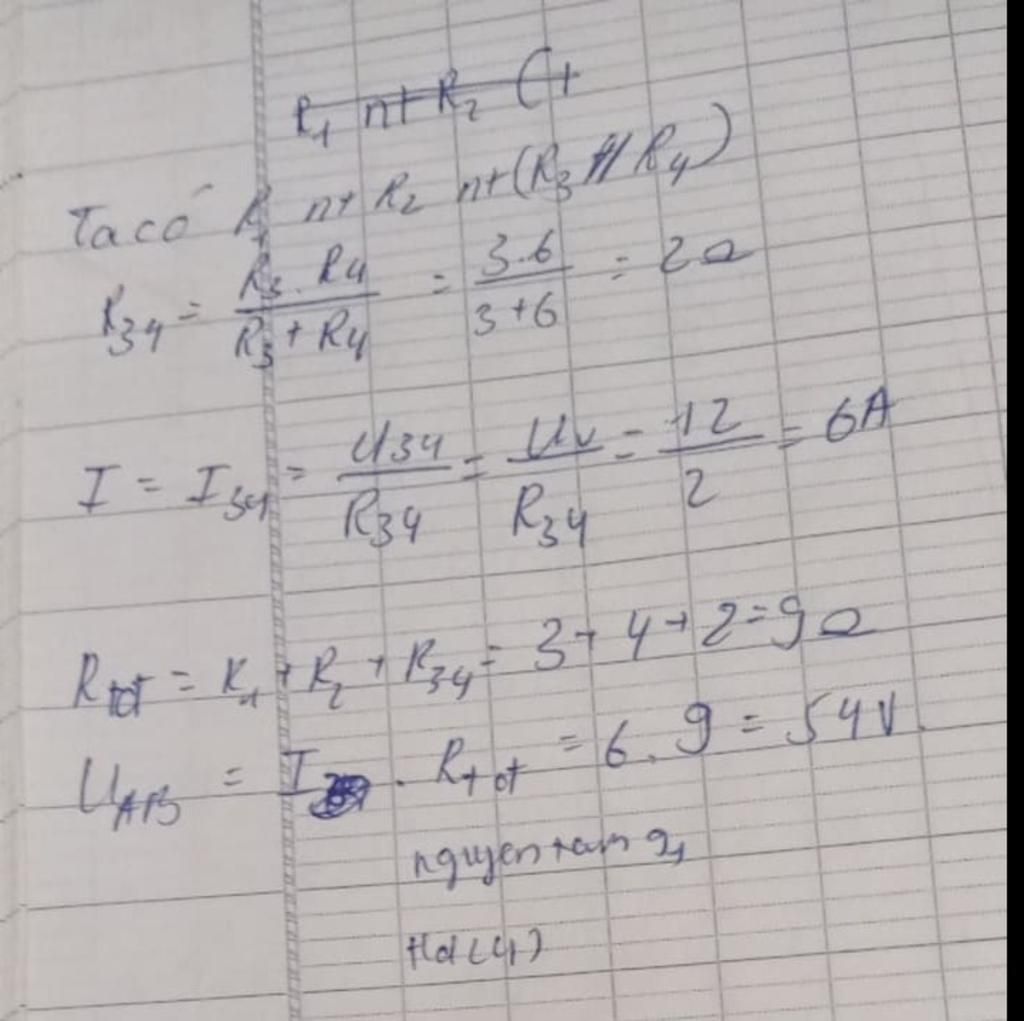 R₁ nt R₂ (+
Ta có R₁ nt R₂ nt (R₃ // R₄)
R₃₄ = R₃ . R₄ / R₃ + R₄ = 3.6 / 3+6 = 2Ω
I = I₃₄ = U₃₄ / R₃₄ = Uv / R₃₄ = 12 / 2 = 6A
Rtot = R₁ + R₂ + R₃₄ = 3 + 4 + 2 = 9Ω
U_AB = I . Rtot = 6 . 9 = 54V.